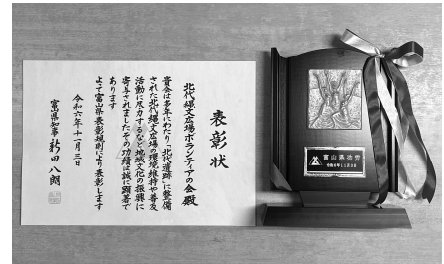 表彰状
北代縄文広場ボランティアの会殿
貴会は多年にわたり「北代遺跡」に整備
された北代縄文広場の環境維持や普及
活動に尽力するなど地域文化の振興に
寄与されましたその功績は誠に顕著で
あります
よって富山県表彰規則により表彰します
令和六年十一月三日
富山県知事 新田八朗
富山県功労
令和6年11月3日